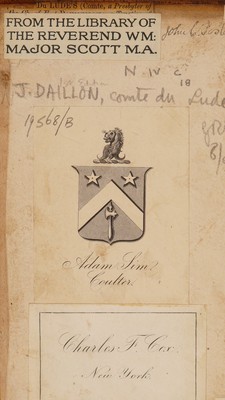 Du LUDE'S (Comte, a Presbyter of
FROM THE LIBRARY OF
THE REVEREND WM:
MAJOR SCOTT M.A.
John C.
N IV c
18
J. DAILLON, comte du Lude
19568/B
Adam Sim.
Coulter.
Charles F. Cox
New York.